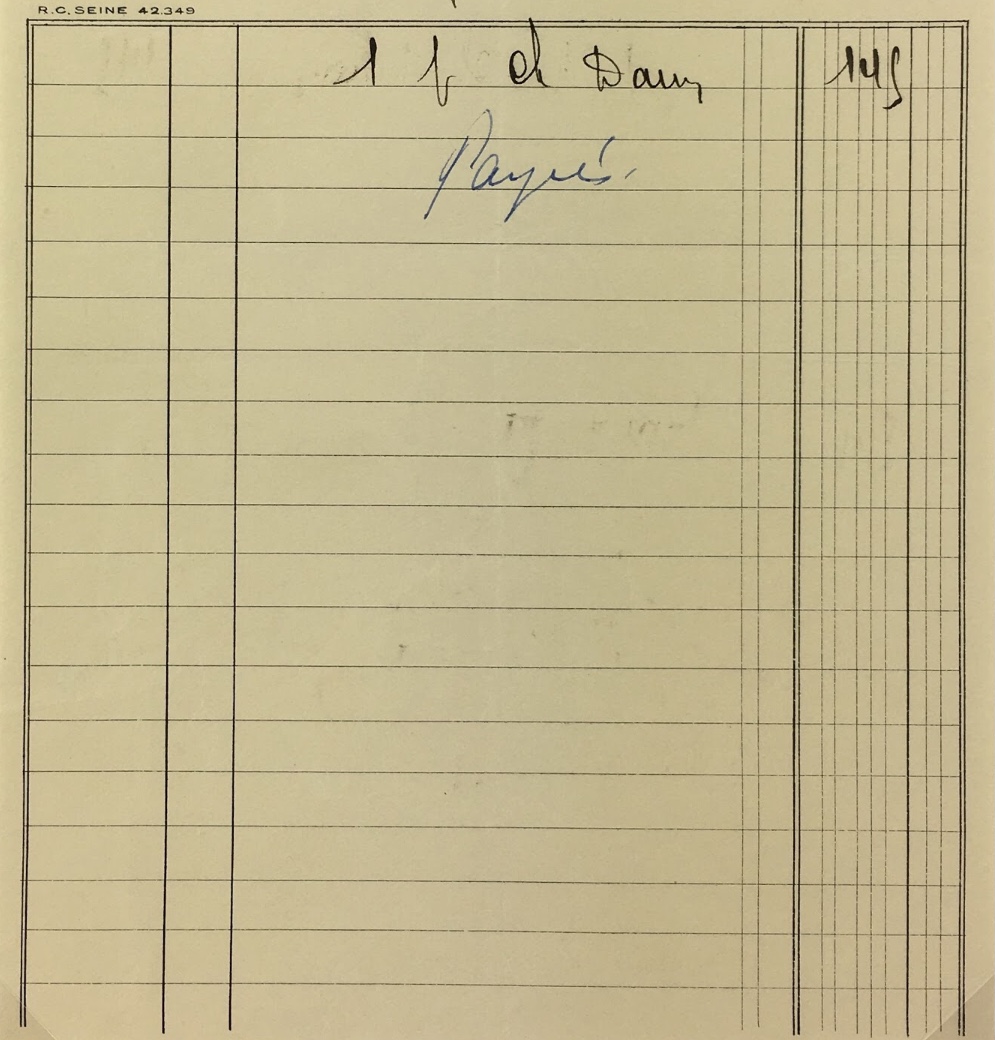 R.C. SEINE 42.349
1 p ch Daim 145
Payés.